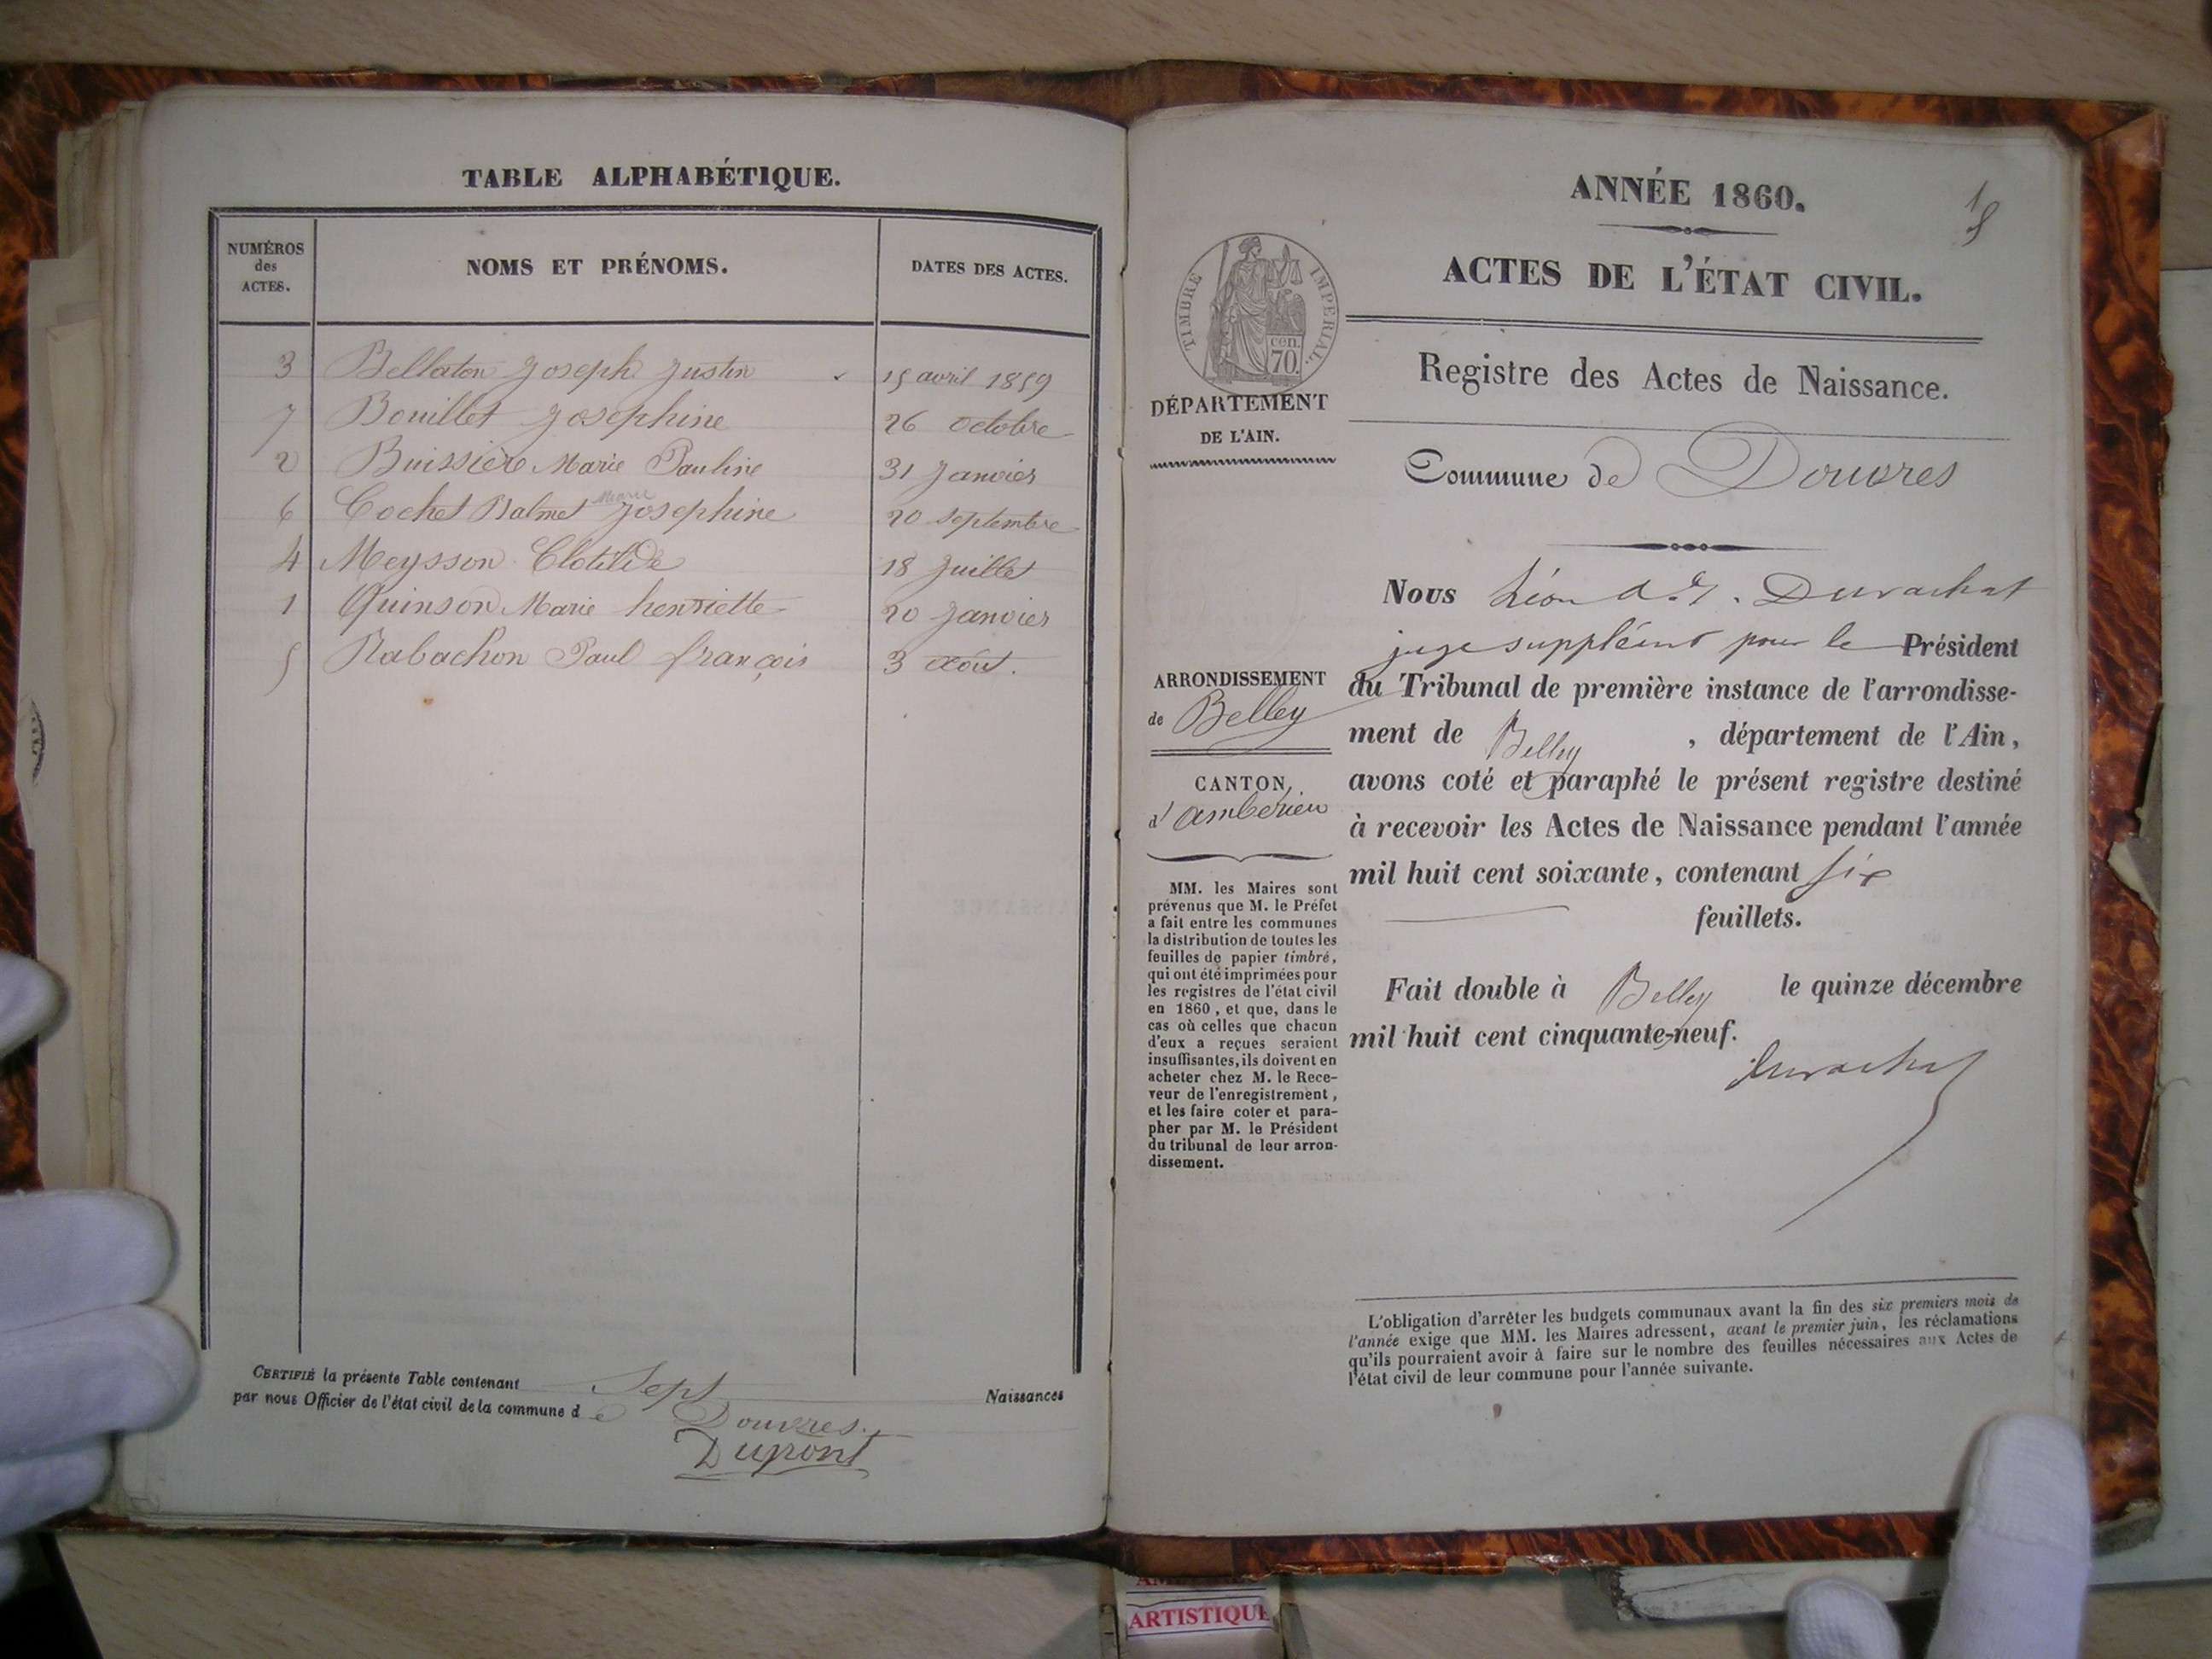 TABLE ALPHABÉTIQUE.
NUMÉROS des ACTES. NOMS ET PRÉNOMS. DATES DES ACTES.
3 Bellaton Joseph Justin 15 avril 1859
7 Bouillet Josephine 26 octobre
2 Buissière Marie Pauline 31 Janvier
6 Cochet Balmet Marie Josephine 20 septembre
4 Meysson Clotilde 18 Juillet
1 Quinson Marie henriette 20 Janvier
5 Rabachon Paul françois 3 Août.
CERTIFIÉ la présente Table contenant Sept Naissances
par nous Officier de l'état civil de la commune de Douvres.
Dupont
ANNÉE 1860.
ACTES DE L'ÉTAT CIVIL.
TIMBRE IMPERIAL.
cen.
70.
Registre des Actes de Naissance.
DÉPARTEMENT
DE L'AIN.
Commune de Douvres
ARRONDISSEMENT
de Belley
CANTON
d'ambérieu
MM. les Maires sont
prévenus que M. le Préfet
a fait entre les communes
la distribution de toutes les
feuilles de papier timbré,
qui ont été imprimées pour
les registres de l'état civil
en 1860, et que, dans le
cas où celles que chacun
d'eux a reçues seraient
insuffisantes, ils doivent en
acheter chez M. le Rece-
veur de l'enregistrement,
et les faire coter et para-
pher par M. le Président
du tribunal de leur arron-
dissement.
Nous Léon Durachat
juge suppléant pour le Président
du Tribunal de première instance de l'arrondisse-
ment de Belley, département de l'Ain,
avons coté et paraphé le présent registre destiné
à recevoir les Actes de Naissance pendant l'année
mil huit cent soixante, contenant six
feuillets.
Fait double à Belley le quinze décembre
mil huit cent cinquante-neuf.
Durachat
L'obligation d'arrêter les budgets communaux avant la fin des six premiers mois de
l'année exige que MM. les Maires adressent, avant le premier juin, les réclamations
qu'ils pourraient avoir à faire sur le nombre des feuilles nécessaires aux Actes de
l'état civil de leur commune pour l'année suivante.
ARTISTIQUE